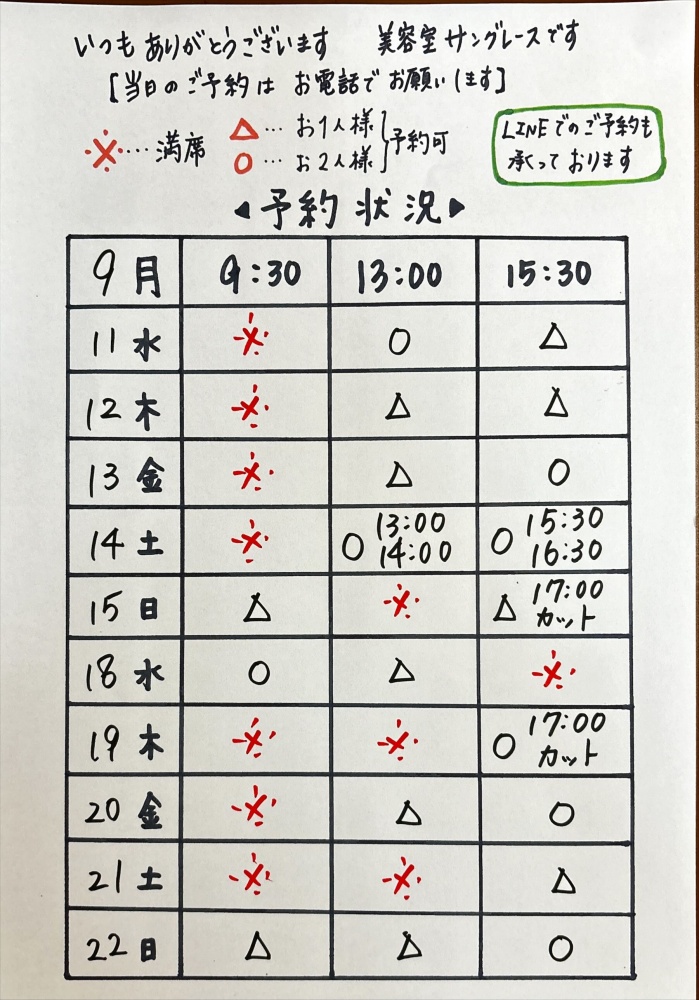 いつもありがとうございます 美容室サングレースです
[当日のご予約はお電話でお願いします]
※…満席 △…お1人様 ○…お2人様 予約可
LINEでのご予約も
承っております
◀予約状況▶
9月 9:30 13:00 15:30
11 水 ※ ○ △
12 木 ※ △ △
13 金 ※ △ ○
14 土 ※ ○ 13:00 14:00 ○ 15:30 16:30
15 日 △ ※ △ 17:00 カット
18 水 ○ △ ※
19 木 ※ ※ ○ 17:00 カット
20 金 ※ △ ○
21 土 ※ ※ △
22 日 △ △ ○